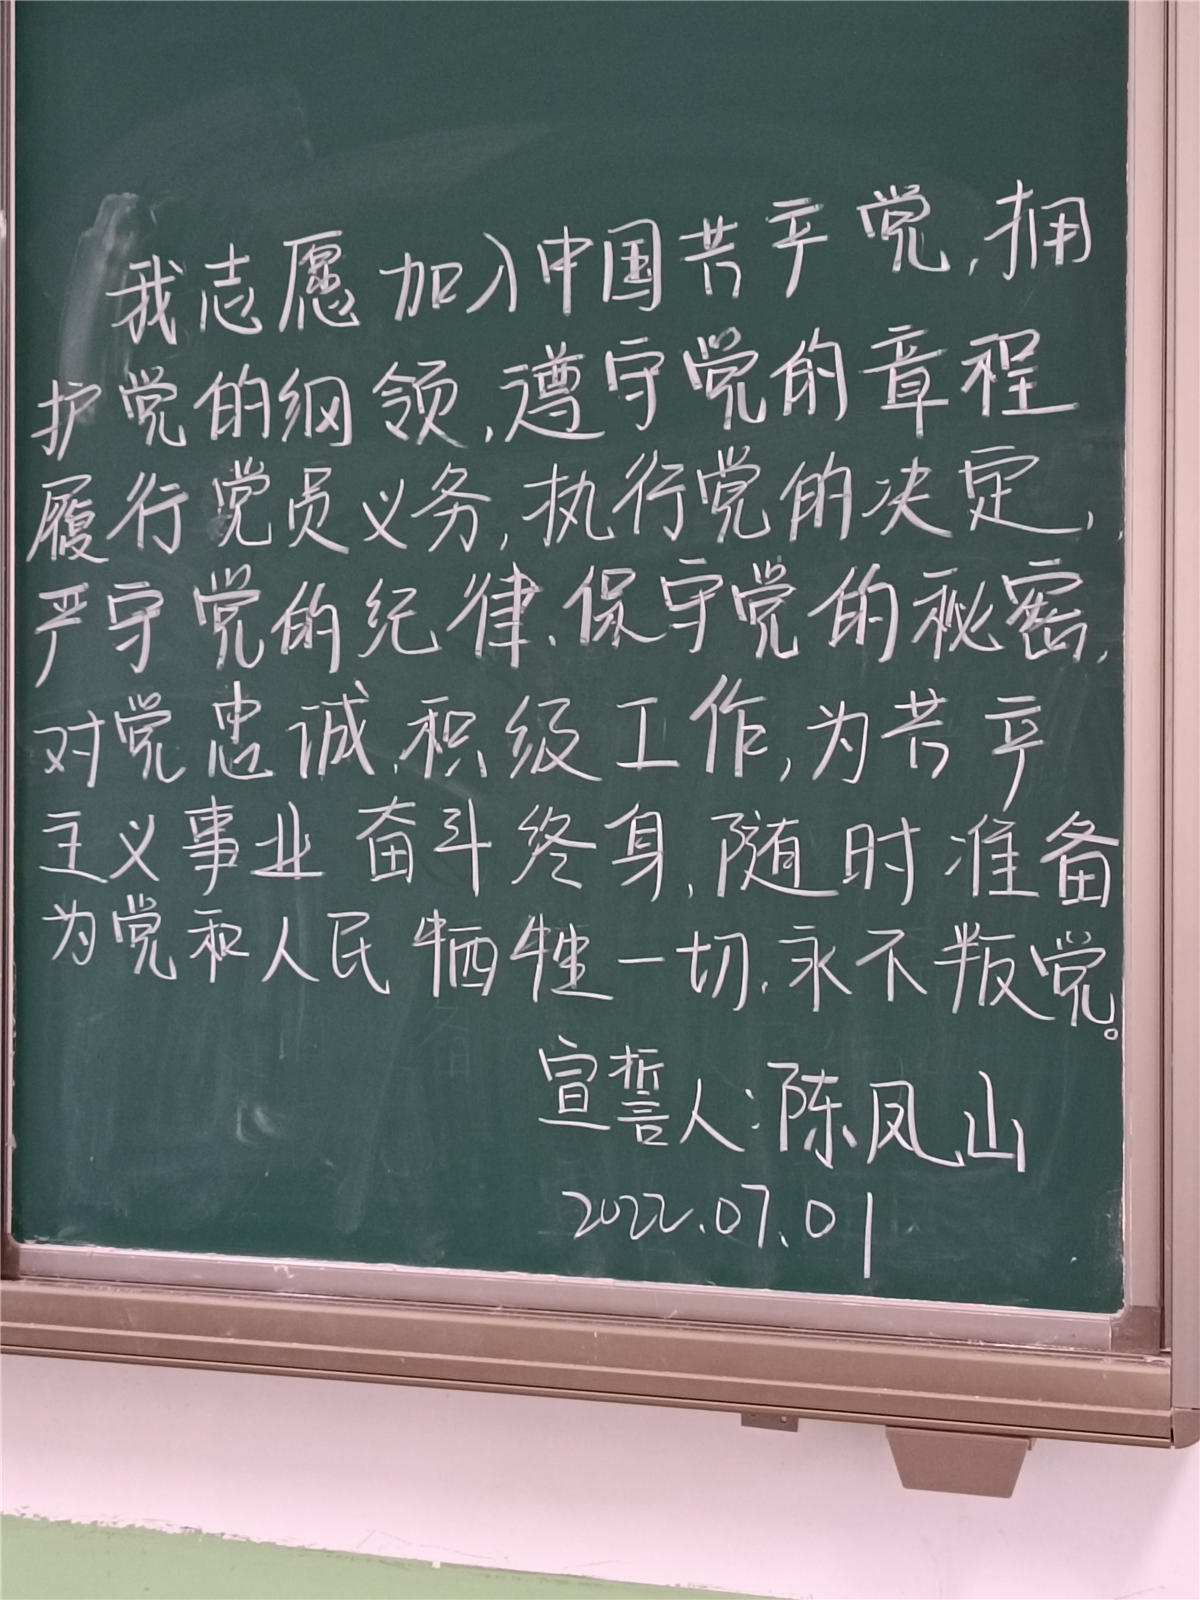 我志愿加入中国共产党,拥
护党的纲领,遵守党的章程
履行党员义务,执行党的决定,
严守党的纪律,保守党的秘密,
对党忠诚,积级工作,为共产
主义事业奋斗终身,随时准备
为党和人民牺牲一切,永不叛党。
宣誓人:陈凤山
2022.07.01